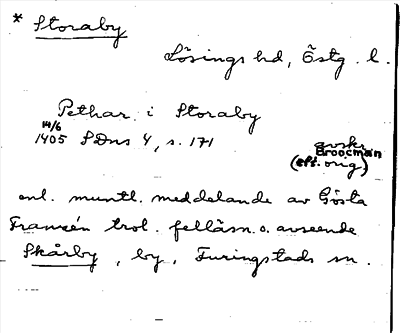 * Storaby
Lösings hd, Östg. l.
Pethar i Storaby
14/6
1405 SDns 4, s. 171
avskr.
Broocman
(eft. orig)
enl. muntl. meddelande av Gösta
Franzén trol. felläsn. o. avseende
Skårby, by, Furingstads sn.